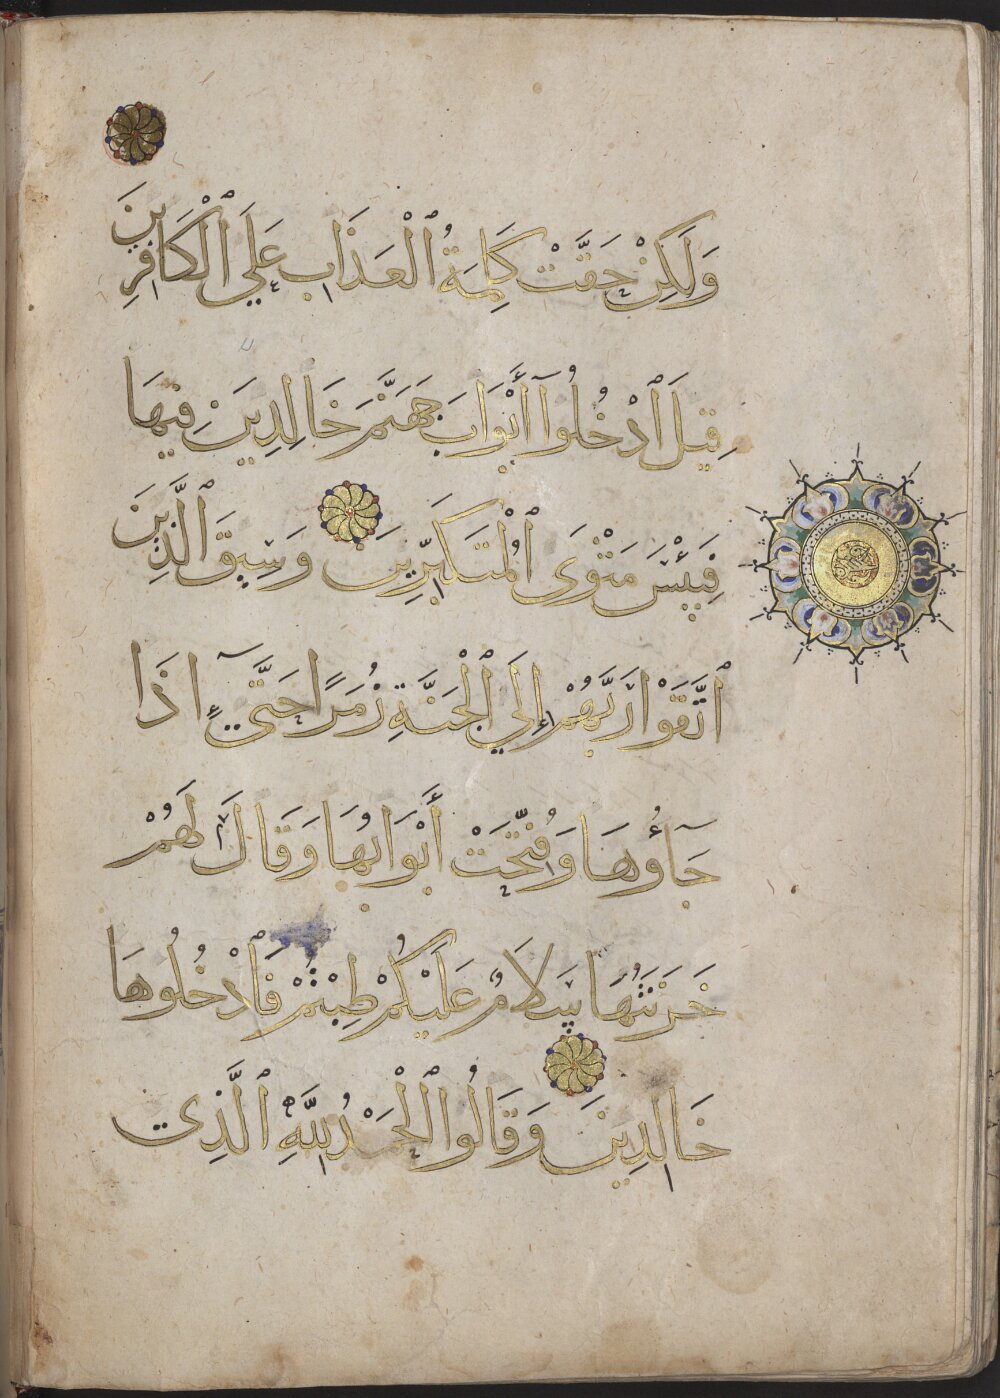 وَلَكِنْ حَقَّتْ كَلِمَةُ ٱلْعَذَابِ عَلَي ٱلْكَافِرِينَ
قِيلَ ٱدْخُلُوآ أَبْوَابَ جَهَنَّمَ خَالِدِينَ فِيهَا
فَبِئْسَ مَثْوَى ٱلْمُتَكَبِّرِينَ وَسِيقَ ٱلَّذِينَ
ٱتَّقَوْا رَبَّهُمْ إِلَي ٱلْجَنَّةِ زُمَرًا حَتَّيٓ إِذَا
جَآءُوهَا وَفُتِّحَتْ أَبْوَابُهَا وَقَالَ لَهُمْ
خَزَنَتُهَا سَلَامٌ عَلَيْكُمْ طِبْتُمْ فَٱدْخُلُوهَا
خَالِدِينَ وَقَالُوا ٱلْحَمْدُ لِلَّهِ ٱلَّذِي